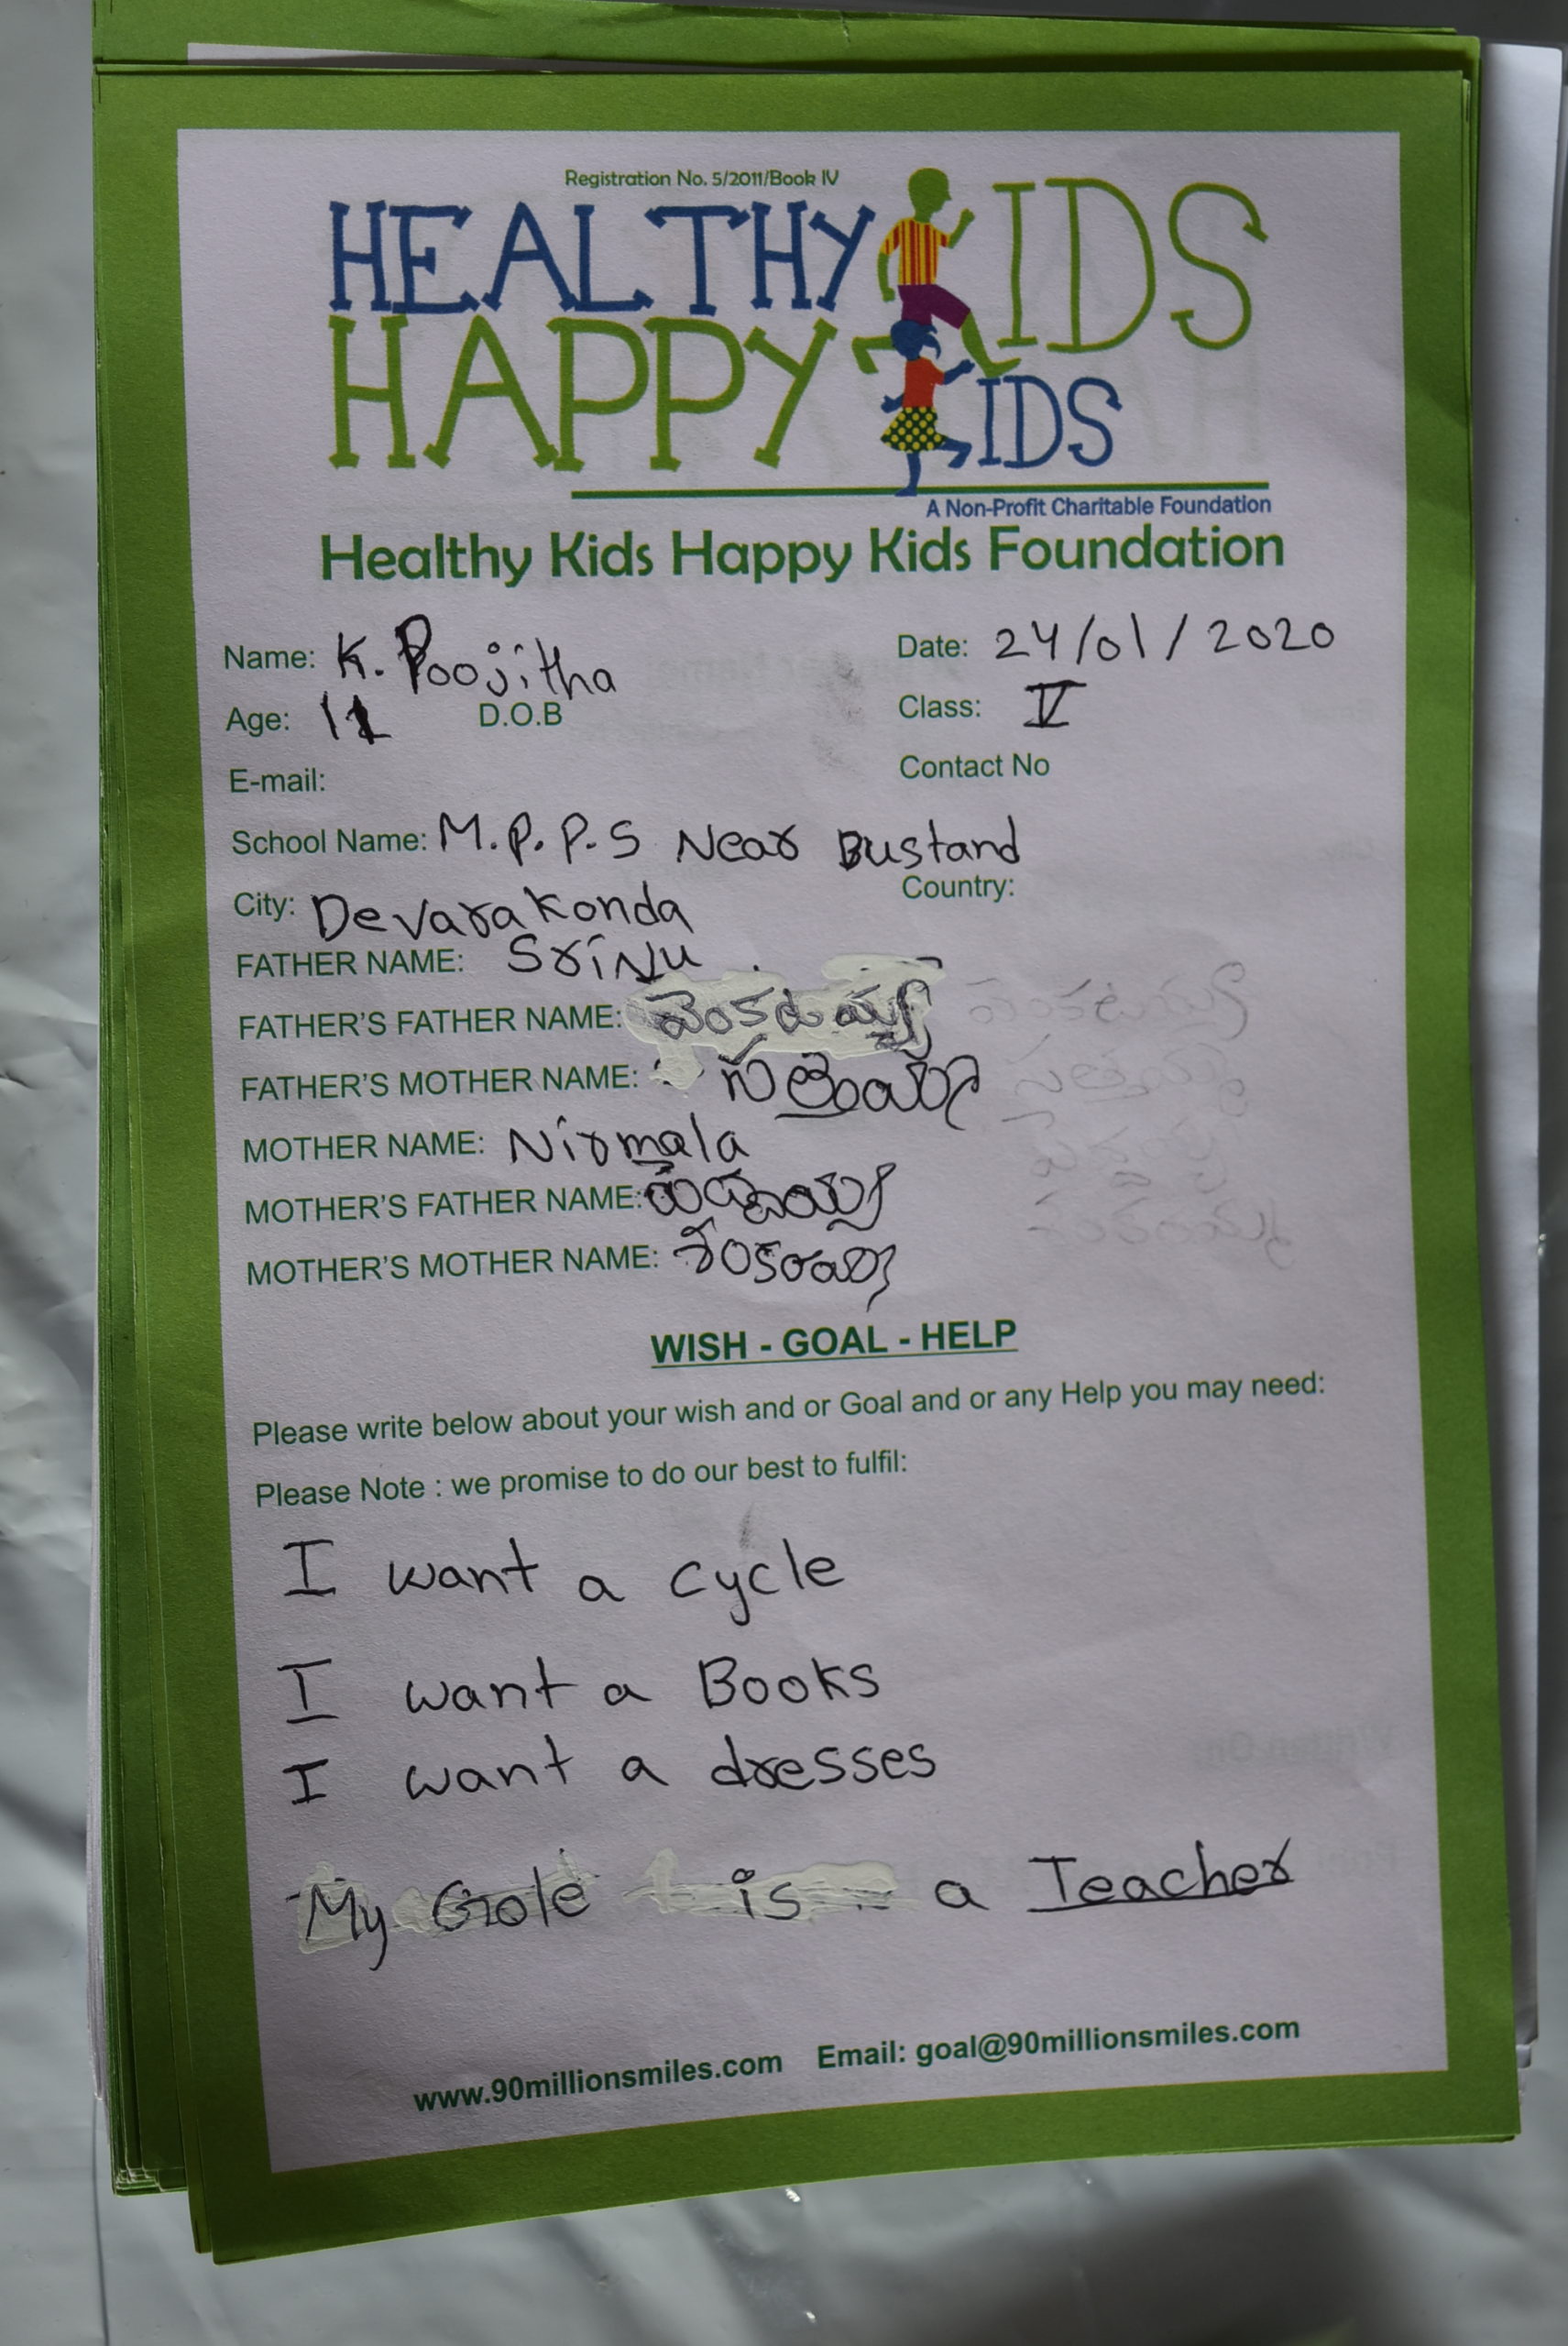 Registration No. 5/2011/Book IV
HEALTHY KIDS
HAPPY KIDS
A Non-Profit Charitable Foundation
Healthy Kids Happy Kids Foundation
Name: K. Poojitha Date: 24/01/2020
Age: 11 D.O.B Class: V
E-mail: Contact No
School Name: M.P.P.S Near Bustand
City: Devarakonda Country:
FATHER NAME: SriNu
FATHER'S FATHER NAME: వెంకటయ్య
FATHER'S MOTHER NAME: సత్తెమ్మ
MOTHER NAME: Nirmala
MOTHER'S FATHER NAME:
MOTHER'S MOTHER NAME:
WISH - GOAL - HELP
Please write below about your wish and or Goal and or any Help you may need:
Please Note : we promise to do our best to fulfil:
I want a cycle
I want a Books
I want a dresses
My Gole is a Teacher
www.90millionsmiles.com Email: goal@90millionsmiles.com